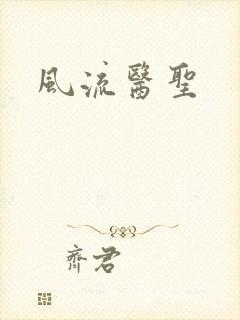 風流醫聖
齊君